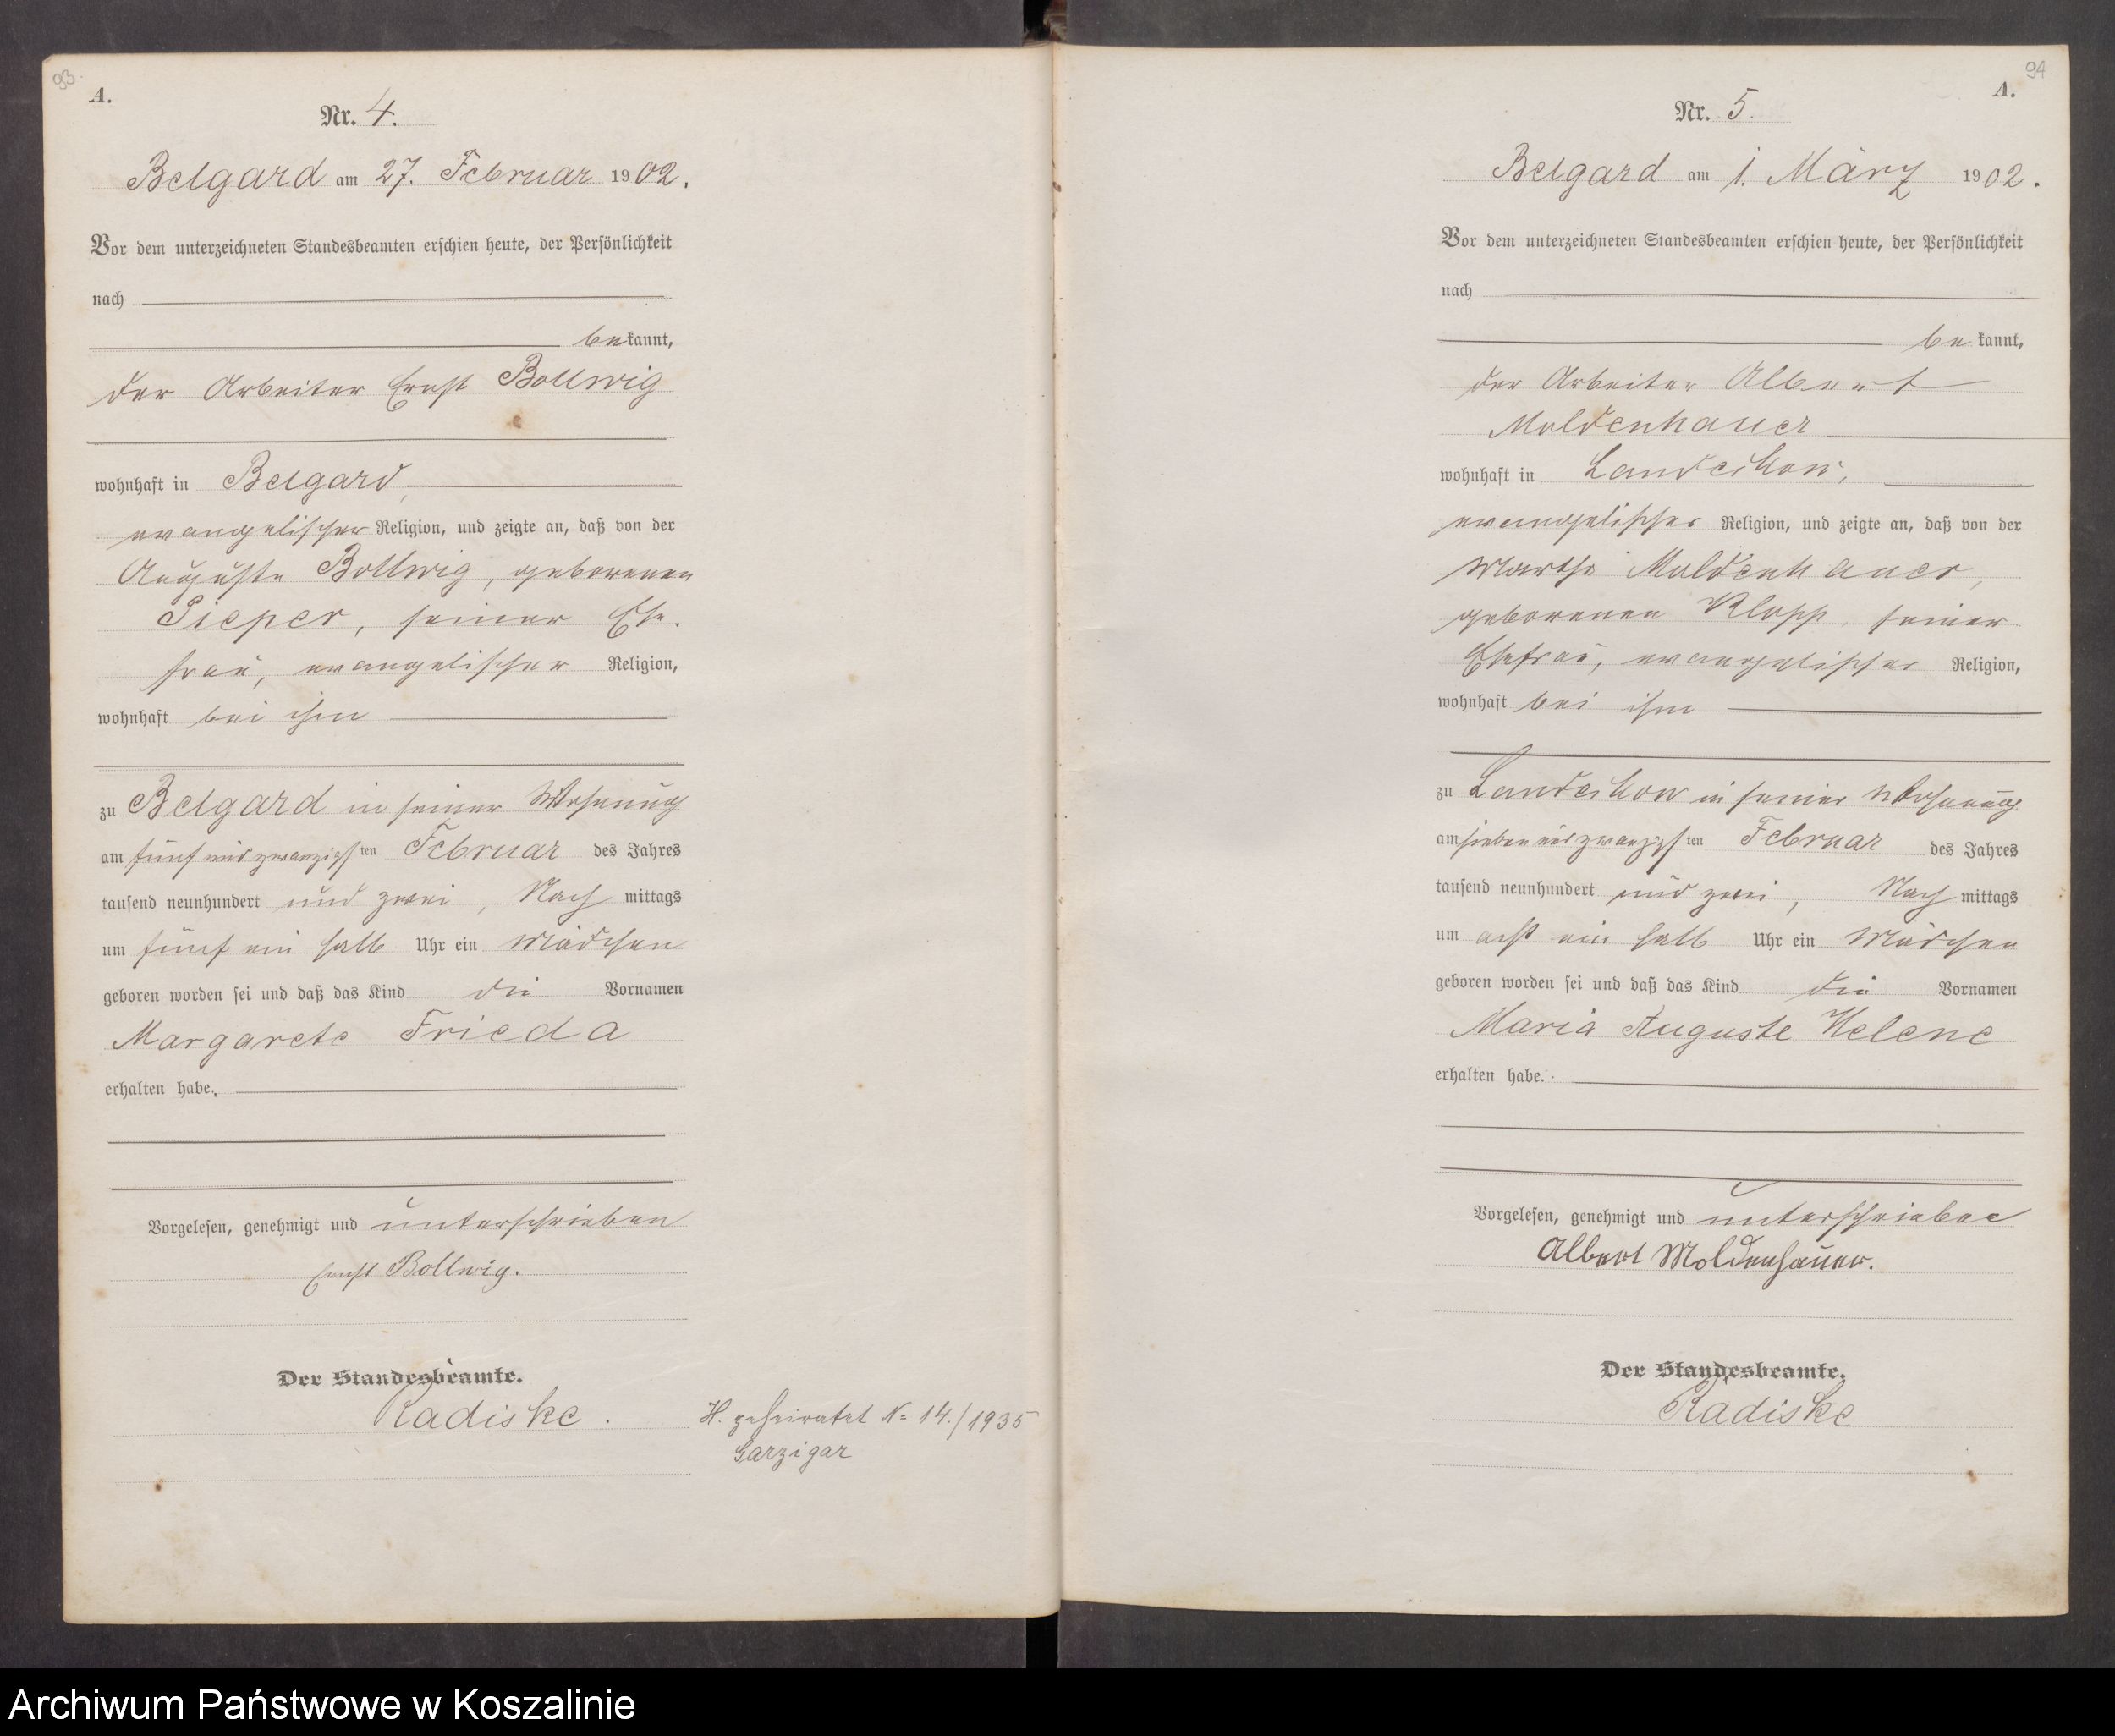 93.
A.
Nr. 4.
Belgard am 27. Februar 1902.
Vor dem unterzeichneten Standesbeamten erschien heute, der Persönlichkeit
nach
bekannt,
der Arbeiter Ernst Bollwig
wohnhaft in Belgard,
evangelischer Religion, und zeigte an, daß von der
Auguste Bollwig, geborenen
Pieper, seiner Ehe-
frau, evangelischer Religion,
wohnhaft bei ihm
zu Belgard in seiner Wohnung
am fünf und zwanzigsten Februar des Jahres
tausend neunhundert und zwei, Nachmittags
um fünf ein halb Uhr ein Mädchen
geboren worden sei und daß das Kind die Vornamen
Margarete Frieda
erhalten habe.
Vorgelesen, genehmigt und unterschrieben
Ernst Bollwig.
Der Standesbeamte.
Radiske.
H. geheiratet No 14./1935
Garzigar
94
A.
Nr. 5.
Belgard am 1. März 1902.
Vor dem unterzeichneten Standesbeamten erschien heute, der Persönlichkeit
nach
bekannt,
der Arbeiter Albert
Moldenhauer
wohnhaft in Landechow,
evangelischer Religion, und zeigte an, daß von der
Martha Moldenhauer,
geborenen Klopp, seiner
Ehefrau, evangelischer Religion,
wohnhaft bei ihm
zu Landechow in seiner Wohnung
am sieben und zwanzigsten Februar des Jahres
tausend neunhundert und zwei, Nachmittags
um acht ein halb Uhr ein Mädchen
geboren worden sei und daß das Kind die Vornamen
Maria Auguste Helene
erhalten habe.
Vorgelesen, genehmigt und unterschrieben
Albert Moldenhauer.
Der Standesbeamte.
Radiske
Archiwum Państwowe w Koszalinie